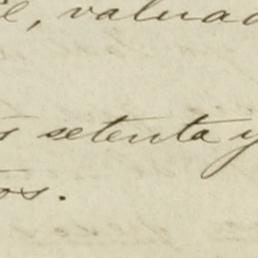 le, valuad
s setenta y
os.